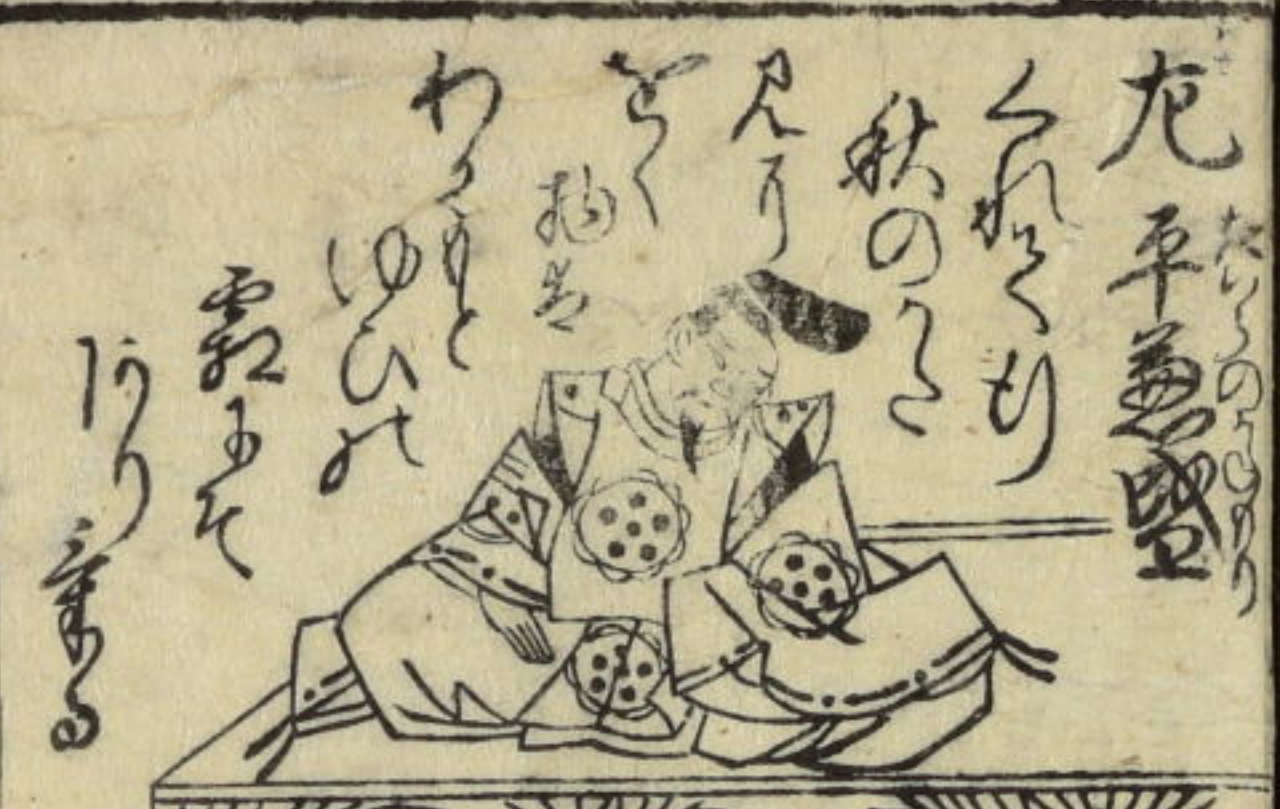 左 平兼盛
たいらのかねもり
くれて行
秋のかた
見に
をく
物は
わかもと
ゆひの
霜にそ
ありける